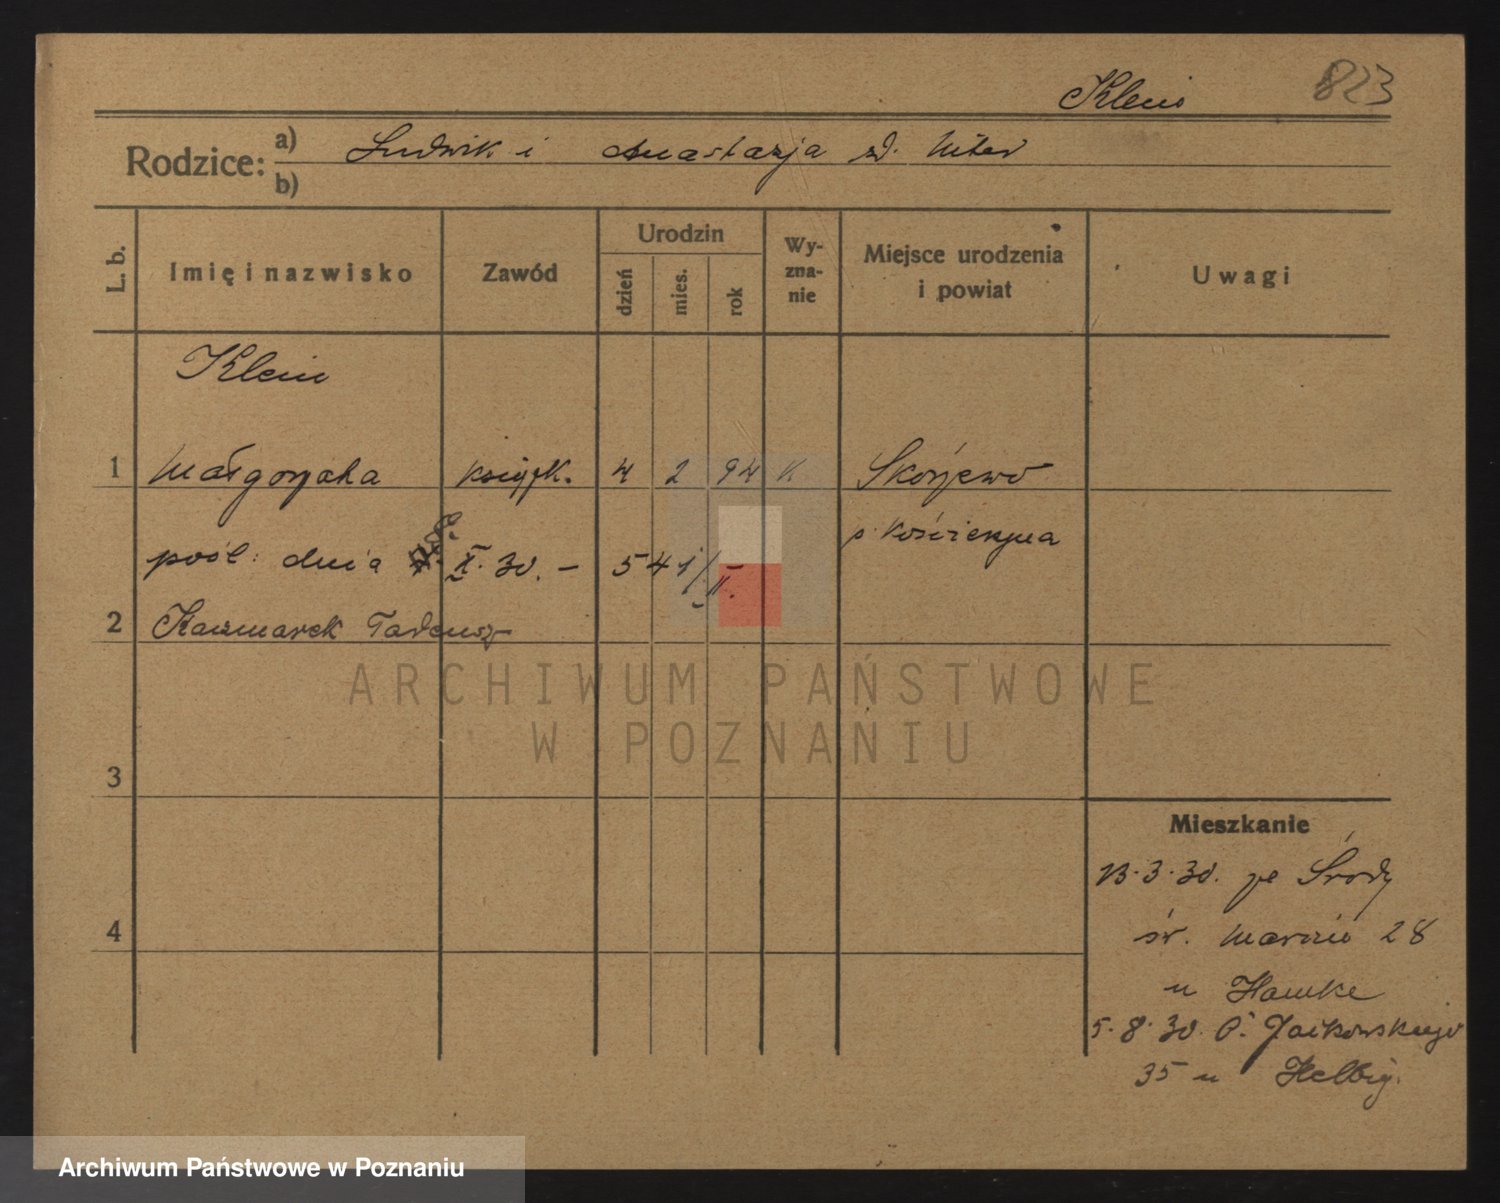 Klein 823
Rodzice: a) Ludwik i Anastazja zd.
b)
L. b. Imię i nazwisko Zawód Urodzin dzień mies. rok Wyznanie Miejsce urodzenia i powiat Uwagi
Klein
1 Małgorzata książk. 4 2 94 K Skorzewo
p. Kościerzyna
pośl: dnia X. 30. – 541/II.
2 Kaczmarek Tadeusz
ARCHIWUM PAŃSTWOWE
W POZNANIU
3
4
Mieszkanie
13.3.30. ze Środy
św. Marcin 28
u Hamke
5.8.30. P.
35 u Helbig.
Archiwum Państwowe w Poznaniu